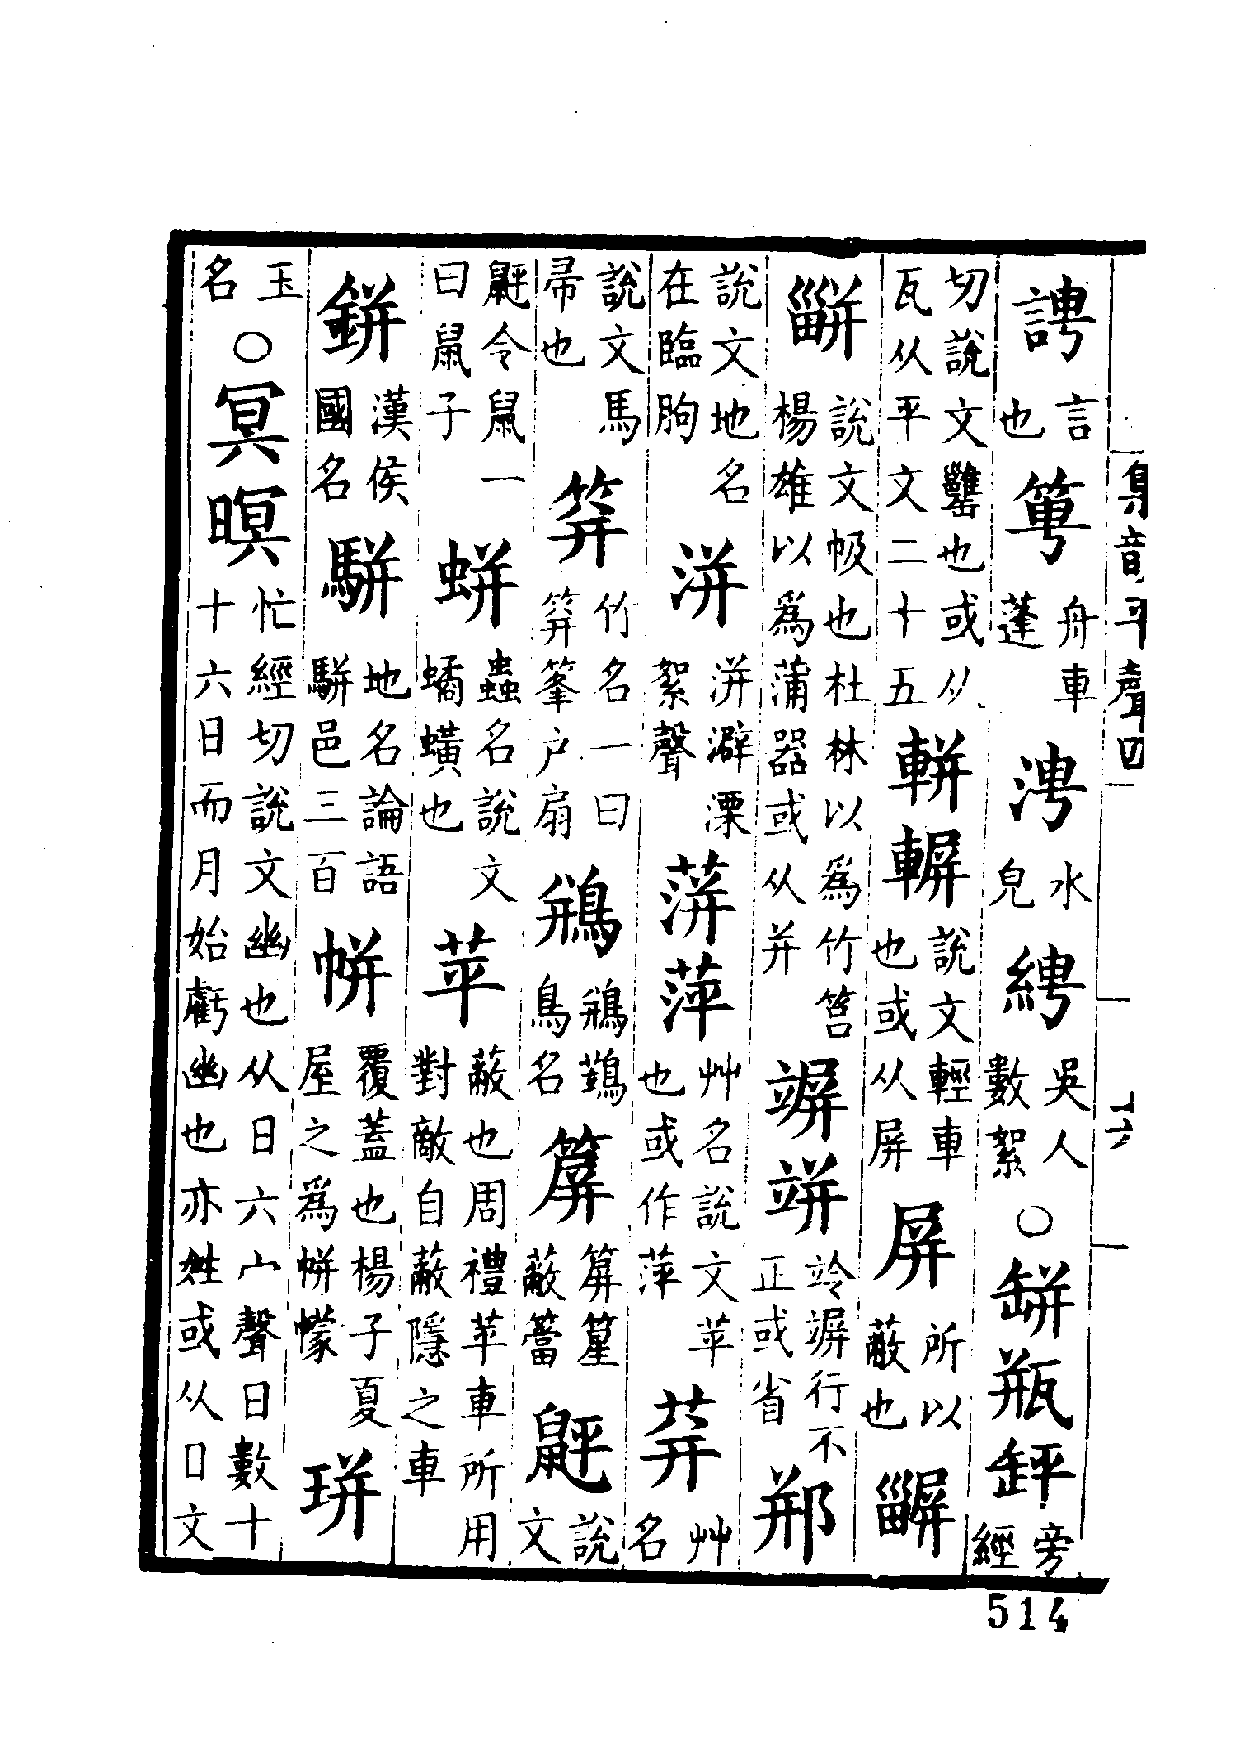 集韻平聲四
十六
䛣言也 𥯤舟車蓬 涄水皃 𦀔吳人數絮 ○缾瓶𦈨旁經
切說文罋也或从瓦从平文二十五 軿𨎍說文輕車也或从屏 屏所以蔽也 𤳊
𤱿說文㡇也杜林以爲竹筥楊雄以爲蒲器或从并 𥪁竮竛𥪁行不正或省 郱
說文地名在臨朐 洴洴澼漂絮聲 蓱萍艸名說文苹也或作萍 荓艸名
說文馬帚也 箳竹名一曰箳篷戶扇 鵧鵧鷑鳥名 箳箳篂蔽簹 𪕒說文
𪕒令鼠一曰鼠子 蛢蟲名說文蟠蟥也 苹蔽也周禮苹車所用對敵自蔽隱之車
鉼漢侯國名 駢地名論語駢邑三百 帡覆蓋也楊子夏屋之爲帡幪 玭
玉名 ○冥暝忙經切說文幽也从日六冖聲日數十十六日而月始虧幽也亦姓或从日文
514